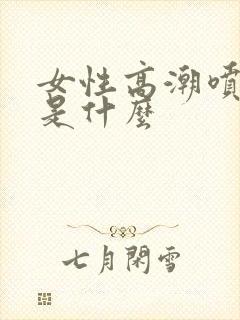 女性高潮噴
是什麼
七月閑雪